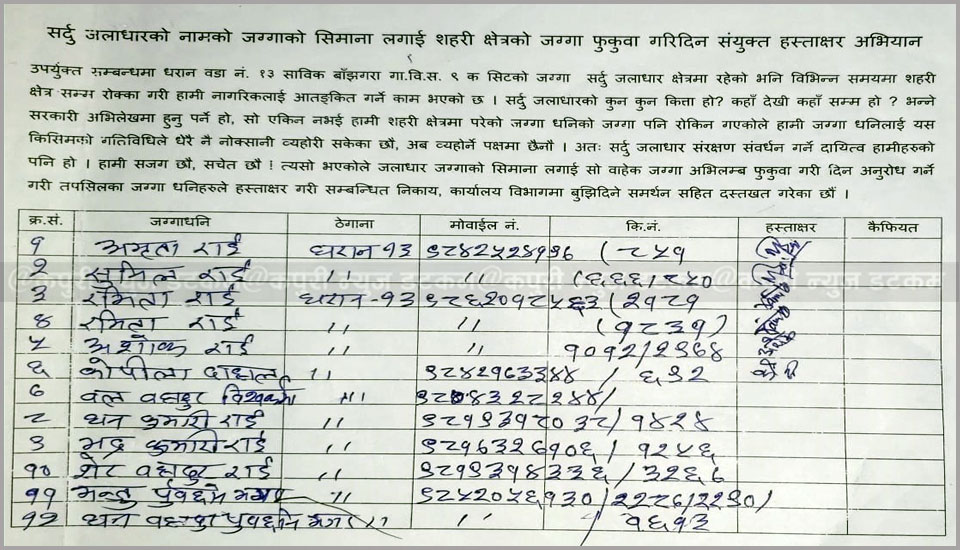 सर्दु जलाधारको नामको जग्गाको सिमाना लगाई शहरी क्षेत्रको जग्गा फुकुवा गरिदिन संयुक्त हस्ताक्षर अभियान
उपर्युक्त सम्बन्धमा धरान वडा नं. १३ साविक बाँझगरा गा.वि.स. ९ क सिटको जग्गा सर्दु जलाधार क्षेत्रमा रहेको भनि विभिन्न समयमा शहरी
क्षेत्र सम्म रोक्का गरी हामी नागरिकलाई आतङ्कित गर्ने काम भएको छ । सर्दु जलाधारको कुन कुन कित्ता हो? कहाँ देखी कहाँ सम्म हो ? भन्ने
सरकारी अभिलेखमा हुनु पर्ने हो, सो एकिन नभई हामी शहरी क्षेत्रमा परेको जग्गा धनिको जग्गा पनि रोकिन गएकोले हामी जग्गा धनिलाई यस
किसिमको गतिविधिले धेरै नै नोक्सानी व्यहोरी सकेका छौ, अब व्यहोर्ने पक्षमा छैनौ । अतः सर्दु जलाधार संरक्षण संवर्धन गर्ने दायित्व हामीहरुको
पनि हो । हामी सजग छौ, सचेत छौ ! त्यसो भएकोले जलाधार जग्गाको सिमाना लगाई सो वाहेक जग्गा अभिलम्ब फुकुवा गरी दिन अनुरोध गर्ने
गरी तपसिलका जग्गा धनिहरुले हस्ताक्षर गरी सम्बन्धित निकाय, कार्यालय विभागमा बुझिदिने समर्थन सहित दस्तखत गरेका छौं ।
क्र.सं. जग्गाधनि ठेगाना मोवाईल नं. कि.नं. हस्ताक्षर कैफियत
१ अमृता राई धरान १३ (८५१
२ सुमिला राई ,, ,,
३ रमिता राई धरान-१३ (२१८१
४ रमिता राई ,, ,, (१८३१)
५ अशोक राई ,, ,, १०१२/
६ कोपीला दाहाल ,, ९८४२९६३३४४ / ६३२
७ वल वहादुर विश्वकर्मा ,,
८ धन कुमारी राई ,, / १४२४
९ भद्र कुमारी राई ,, ९८१७६३२६१०६ / १२५६
१० शेर वहादुर राई ,, ९८१९३१४३३६ / ३२६७
११ ,, ९८५२०५६१३०
१२ धन वहादुर ,, ,, / १६१३